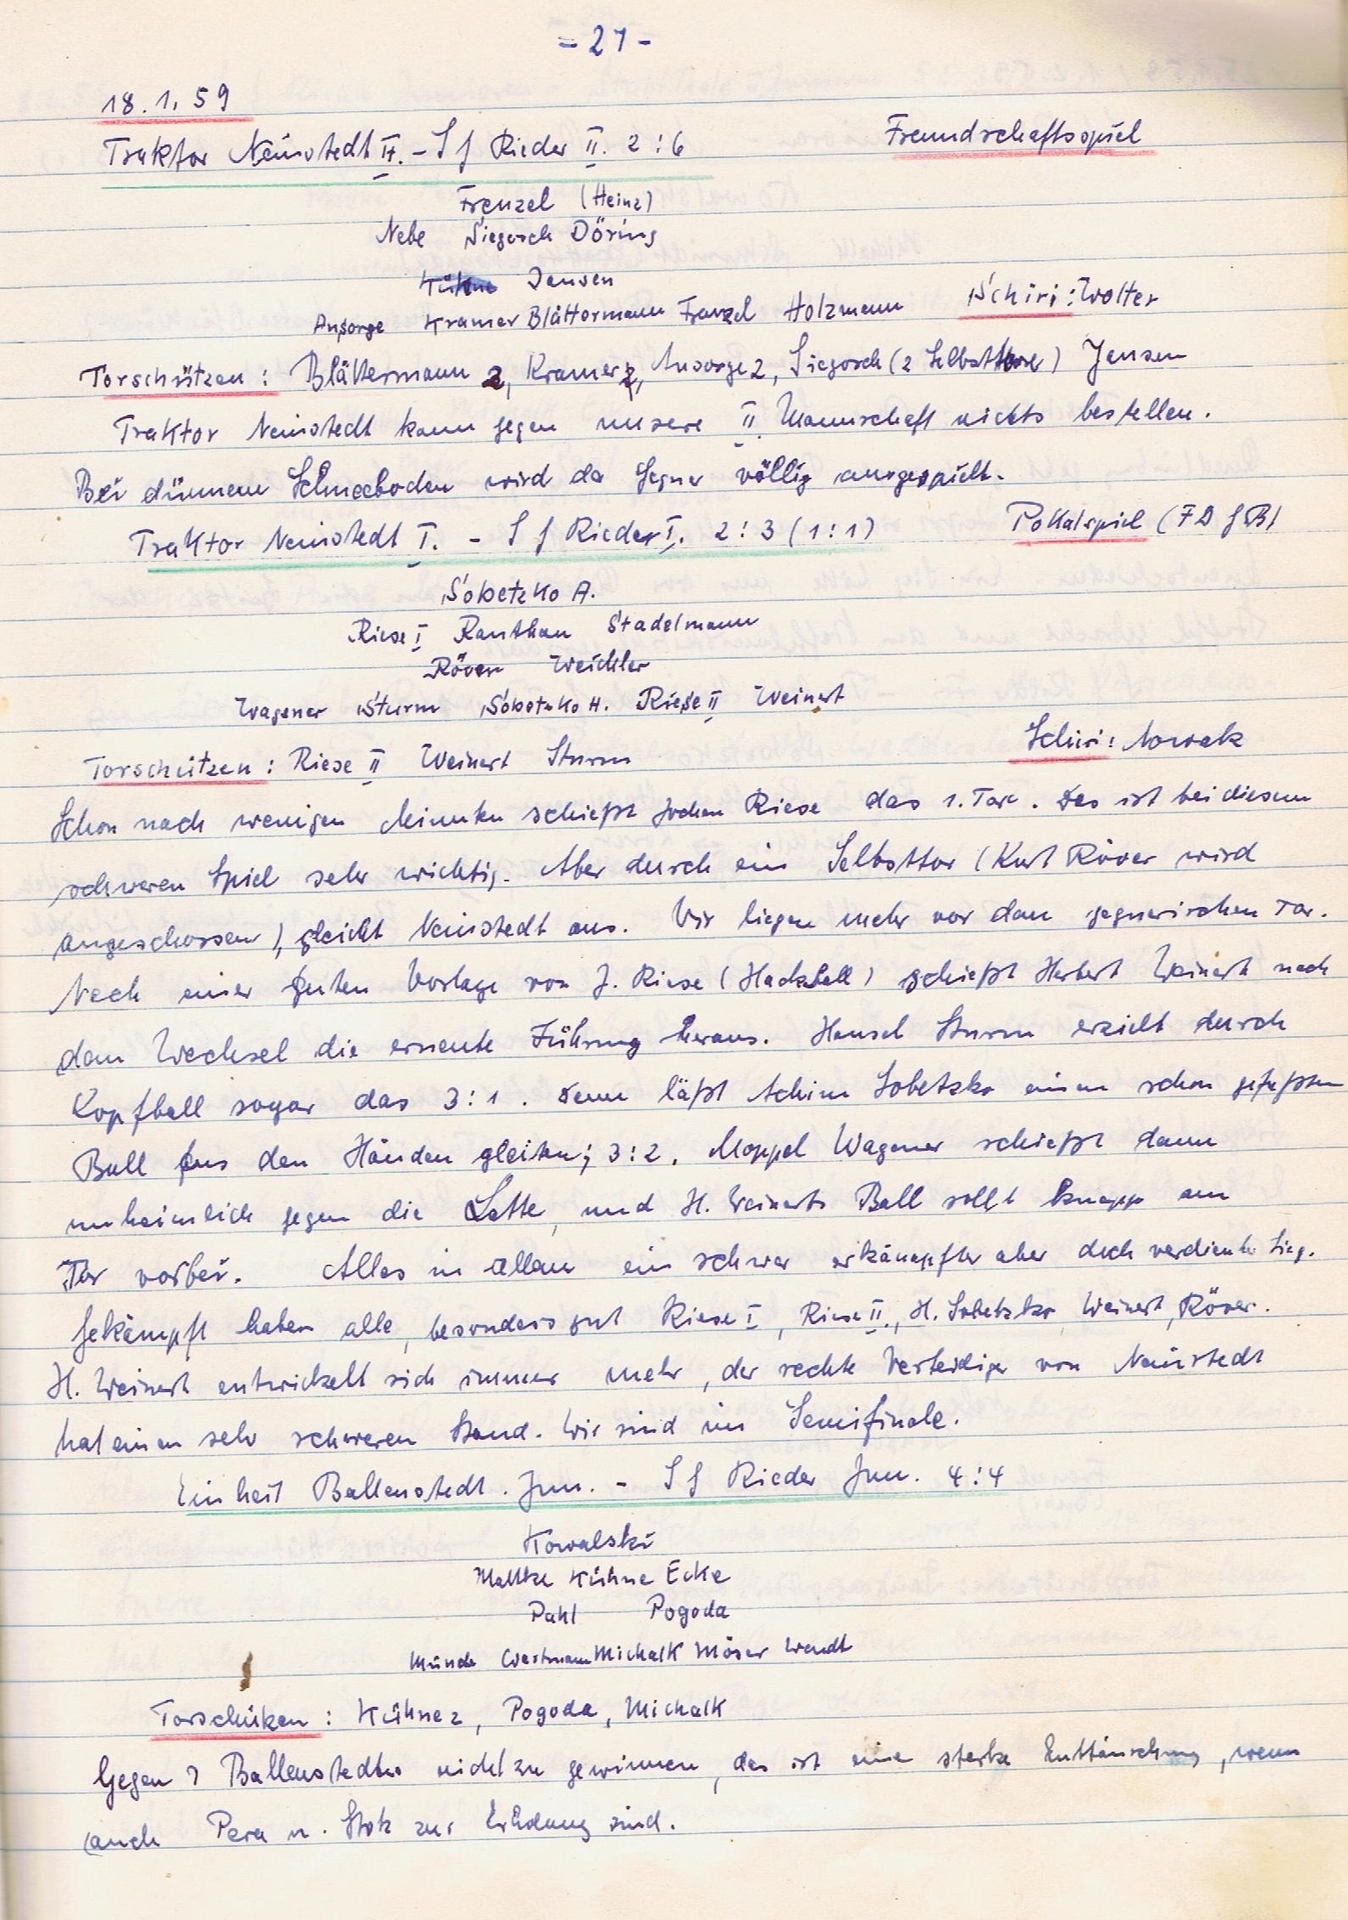 - 21 -
18.1.59
Traktor Neinstedt II. - Sf Rieder II. 2:6 Freundschaftsspiel
Frenzel (Heinz)
Nebe Siegosch Döring
Kühne Jensen
Ansorge Kramer Blättermann Frenzel Holzmann Schiri: Wolter
Torschützen: Blättermann 2, Kramer, Ansorge 2, Siegosch (2 Selbsttore) Jensen
Traktor Neinstedt kann gegen unsere II. Mannschaft nichts bestellen.
Bei dünnem Schneeboden wird der Gegner völlig ausgespielt.
Traktor Neinstedt I. - Sf Rieder I. 2:3 (1:1) Pokalspiel (FDGB)
Sobetzko A.
Riese I Ranthan Stadelmann
Röver Weichler
Wagener Sturm Sobetzko H. Riese II Weinert
Schiri: Nowak
Torschützen: Riese II Weinert Sturm
Schon nach wenigen Minuten schießt Jochen Riese das 1. Tor. Das ist bei diesem
schweren Spiel sehr wichtig. Aber durch ein Selbsttor (Kurt Röver wird
angeschossen), gleicht Neinstedt aus. Wir liegen mehr vor dem gegnerischen Tor.
Nach einer guten Vorlage von J. Riese (Hackball) schießt Herbert Weinert nach
dem Wechsel die erneute Führung heraus. Hansel Sturm erzielt durch
Kopfball sogar das 3:1. Dann läßt Achim Sobetzko einen schon gefaßten
Ball aus den Händen gleiten; 3:2. Moppel Wagener schießt dann
unheimlich gegen die Latte, und H. Weinerts Ball rollt knapp am
Tor vorbei. Alles in allem ein schwer erkämpfter aber doch verdienter Sieg.
Gekämpft haben alle, besonders gut Riese I, Riese II., H. Sobetzko, Weinert, Röver.
H. Weinert entwickelt sich immer mehr, der rechte Verteidiger von Neinstedt
hat einen sehr schweren Stand. Wir sind im Semifinale.
Einheit Ballenstedt. Jun. - Sf Rieder Jun. 4:4
Kowalski
Maltke Kühne Ecke
Pahl Pogoda
Münde Michalk Möser Wendt
Torschützen: Kühne 2, Pogoda, Michalk
Gegen 7 Ballenstedter nicht zu gewinnen, das ist eine starke Enttäuschung, wenn
auch Pera u. Stok zur Erholung sind.